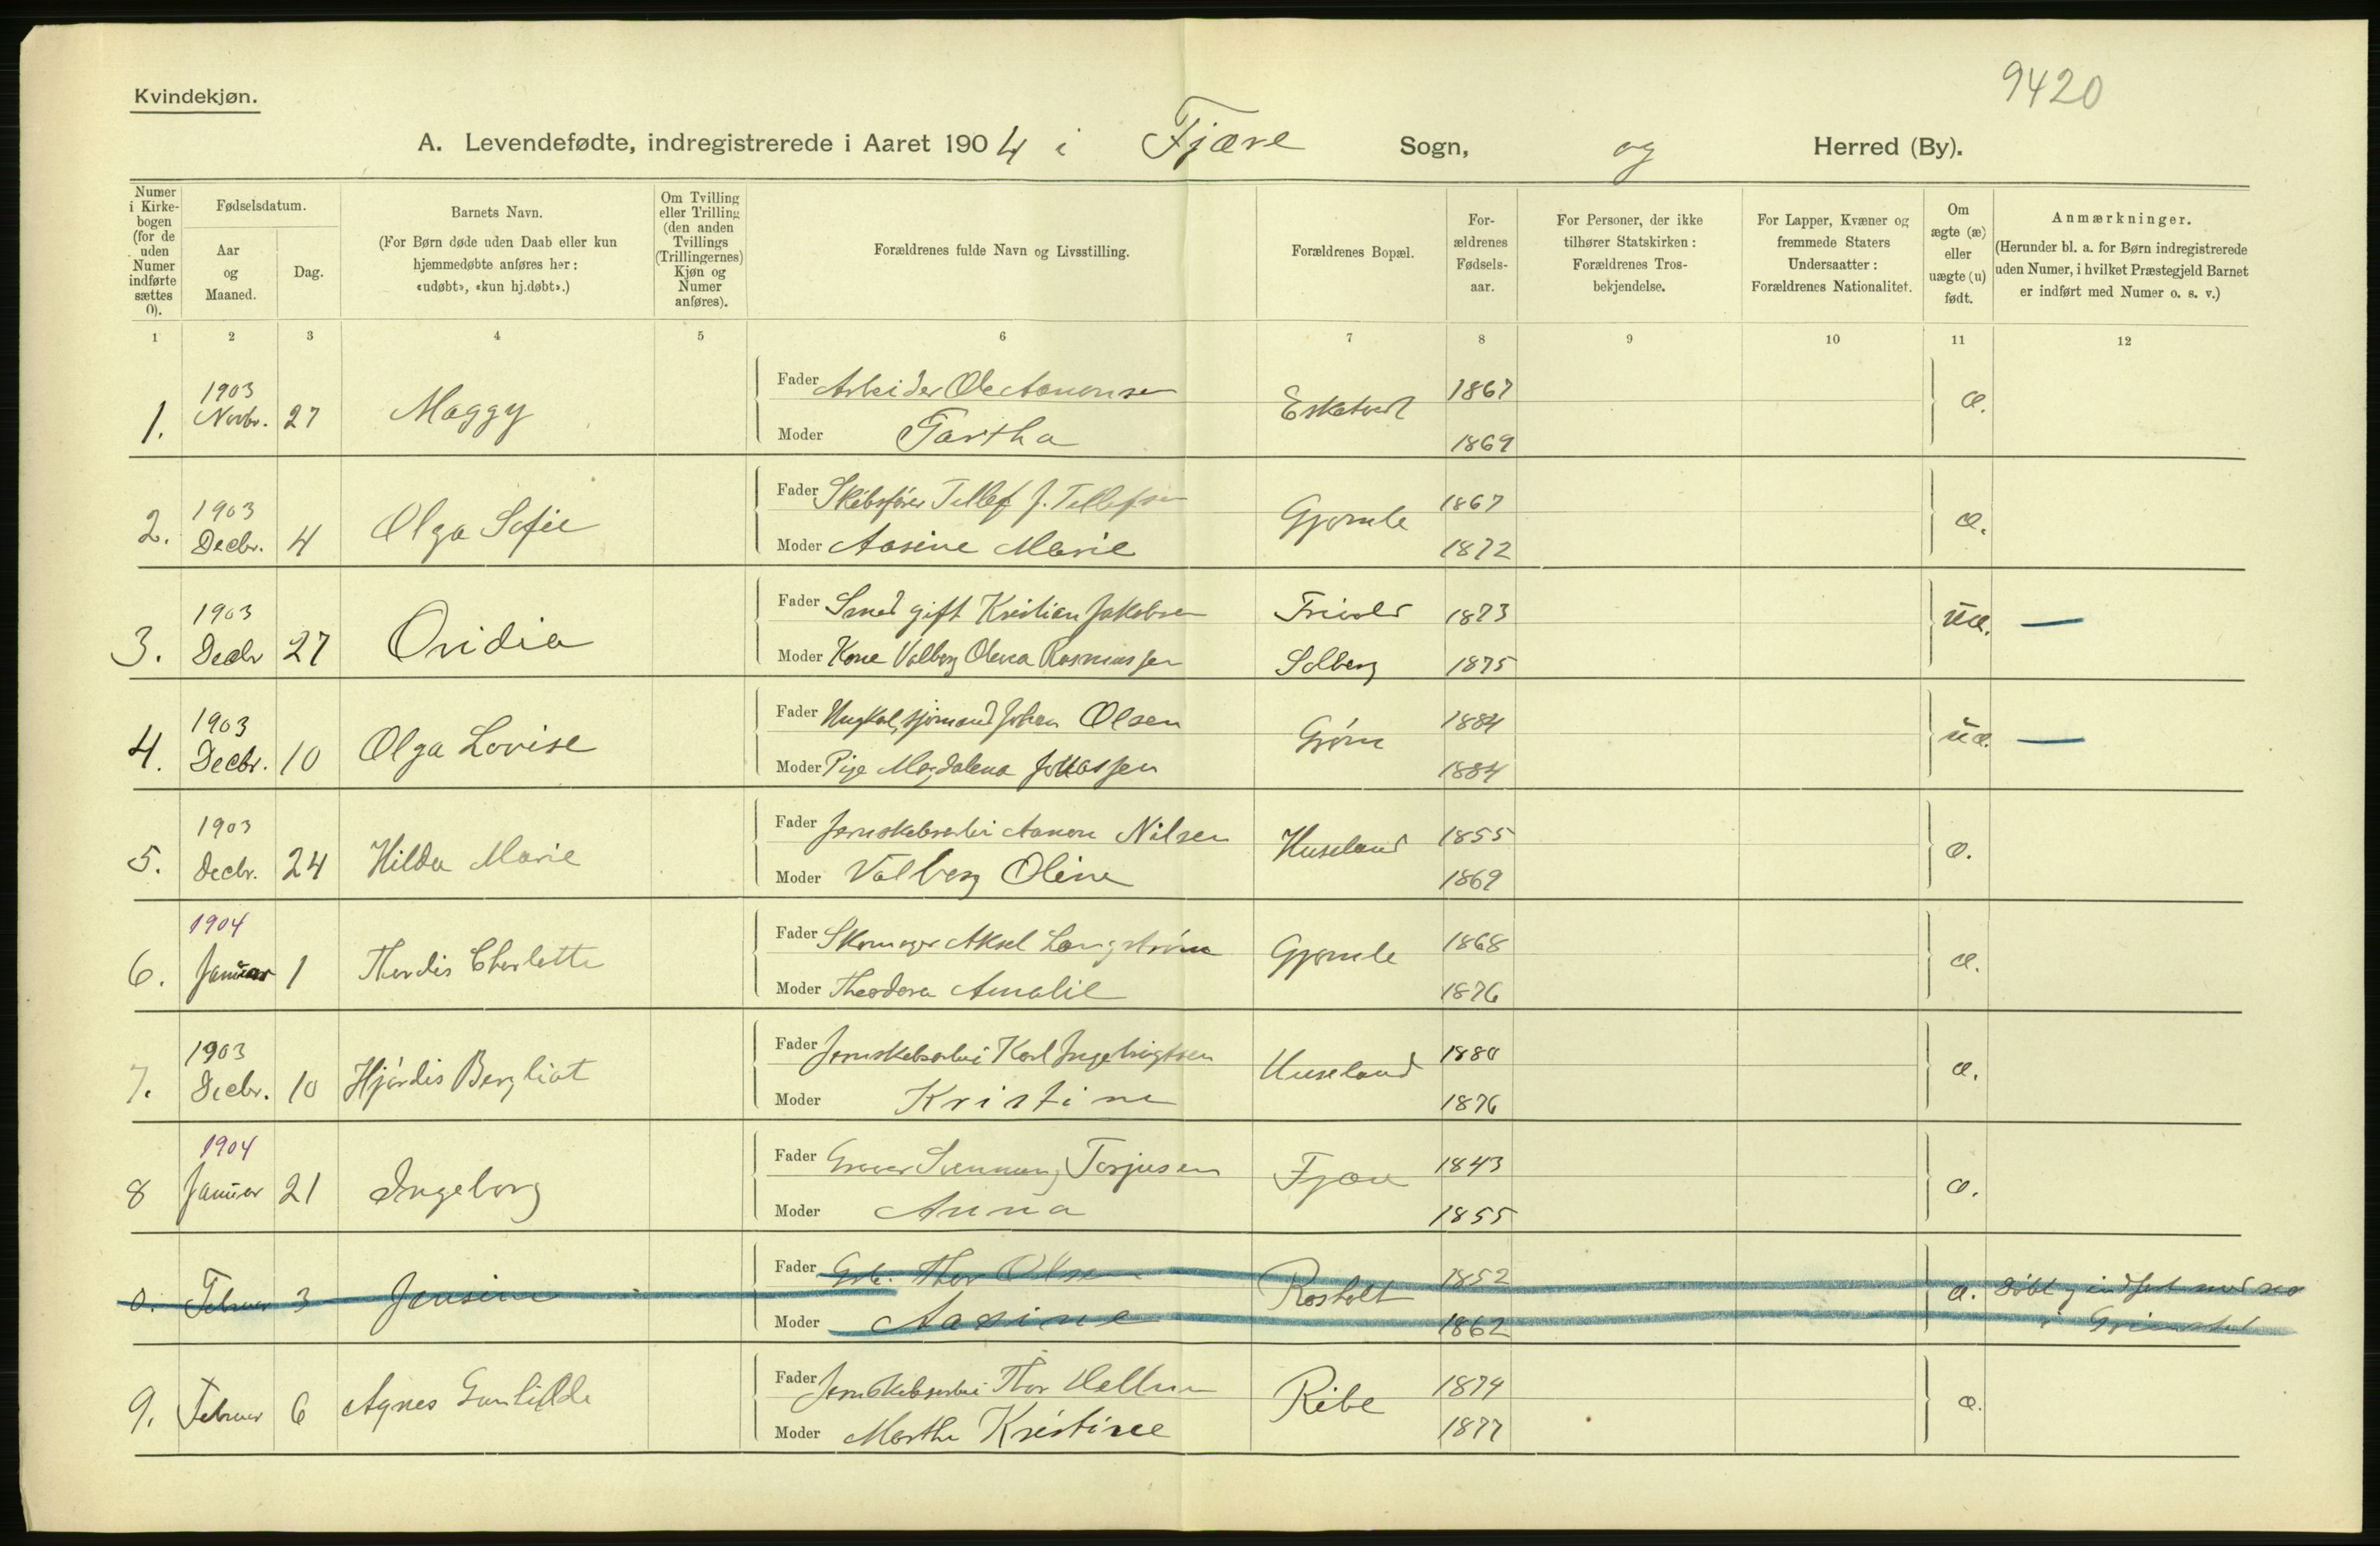 9420
Kvindekjøn.
A. Levendefødte, indregistrerede i Aaret 1904 i Fjære Sogn, og Herred (By).
Numer i Kirke-bogen (for de uden Numer indførte sættes 0).
Fødselsdatum.
Aar og Maaned.
Dag.
Barnets Navn.
(For Børn døde uden Daab eller kun hjemmedøbte anføres her: «udøbt», «kun hj.døbt».)
Om Tvilling eller Trilling (den anden Tvillings (Trillingernes) Kjøn og Numer anføres).
Forældrenes fulde Navn og Livsstilling.
Forældrenes Bopæl.
For-ældrenes Fødsels-aar.
For Personer, der ikke tilhører Statskirken: Forældrenes Tros-bekjendelse.
For Lapper, Kvæner og fremmede Staters Undersaatter: Forældrenes Nationalitet.
Om ægte (æ) eller uægte (u) født.
Anmærkninger.
(Herunder bl. a. for Børn indregistrerede uden Numer, i hvilket Præstegjeld Barnet er indført med Numer o. s. v.)
1 2 3 4 5 6 7 8 9 10 11 12
1. 1903 Novbr. 27 Maggy Fader Arbeider Ole Aanonsen 1867 æ.
Moder Tartha 1869
2. 1903 Decbr. 4 Olga Sofie Fader Skibsfører Tellef J. Tellefsen Gjømle 1867 æ.
Moder Aasine Marie 1872
3. 1903 Decbr 27 Ovidia Fader Smed gift Kristian Jakobsen 1873 uæ. —
Moder Kone Valborg Olena Rasmussen Solberg 1875
4. 1903 Decbr. 10 Olga Lovise Fader Ungkarl, sjømand Johan Olsen Grøm 1884 uæ. —
Moder Pige Magdalena 1884
5. 1903 Decbr. 24 Hilda Marie Fader Jernskibsarbei Aanon Nilsen Huseland 1855 æ.
Moder Valborg Oline 1869
6. 1904 Januar 1 Thordis Charlotte Fader Skomager Aksel Langstrøm Gjømle 1868 æ.
Moder Theodora Amalie 1876
7. 1903 Decbr. 10 Hjørdis Bergliot Fader Jernskibsarbei Karl Ingebrigtsen Huseland 1880 æ.
Moder Kristine 1876
8 1904 Januar 21 Ingeborg Fader Graver Sunnung Torjusen Fjære 1843 æ.
Moder Anna 1855
0. Februar 3 Jensine Fader Grb. Thor Olsen Rosholt 1852 æ. Døbt og indført med no
Moder Aasine 1862 i Grimstad
9. Februar 6 Agnes Gunhilde Fader Jernskibsarbei Thor Ribe 1874 æ.
Moder Marthe Kristine 1877